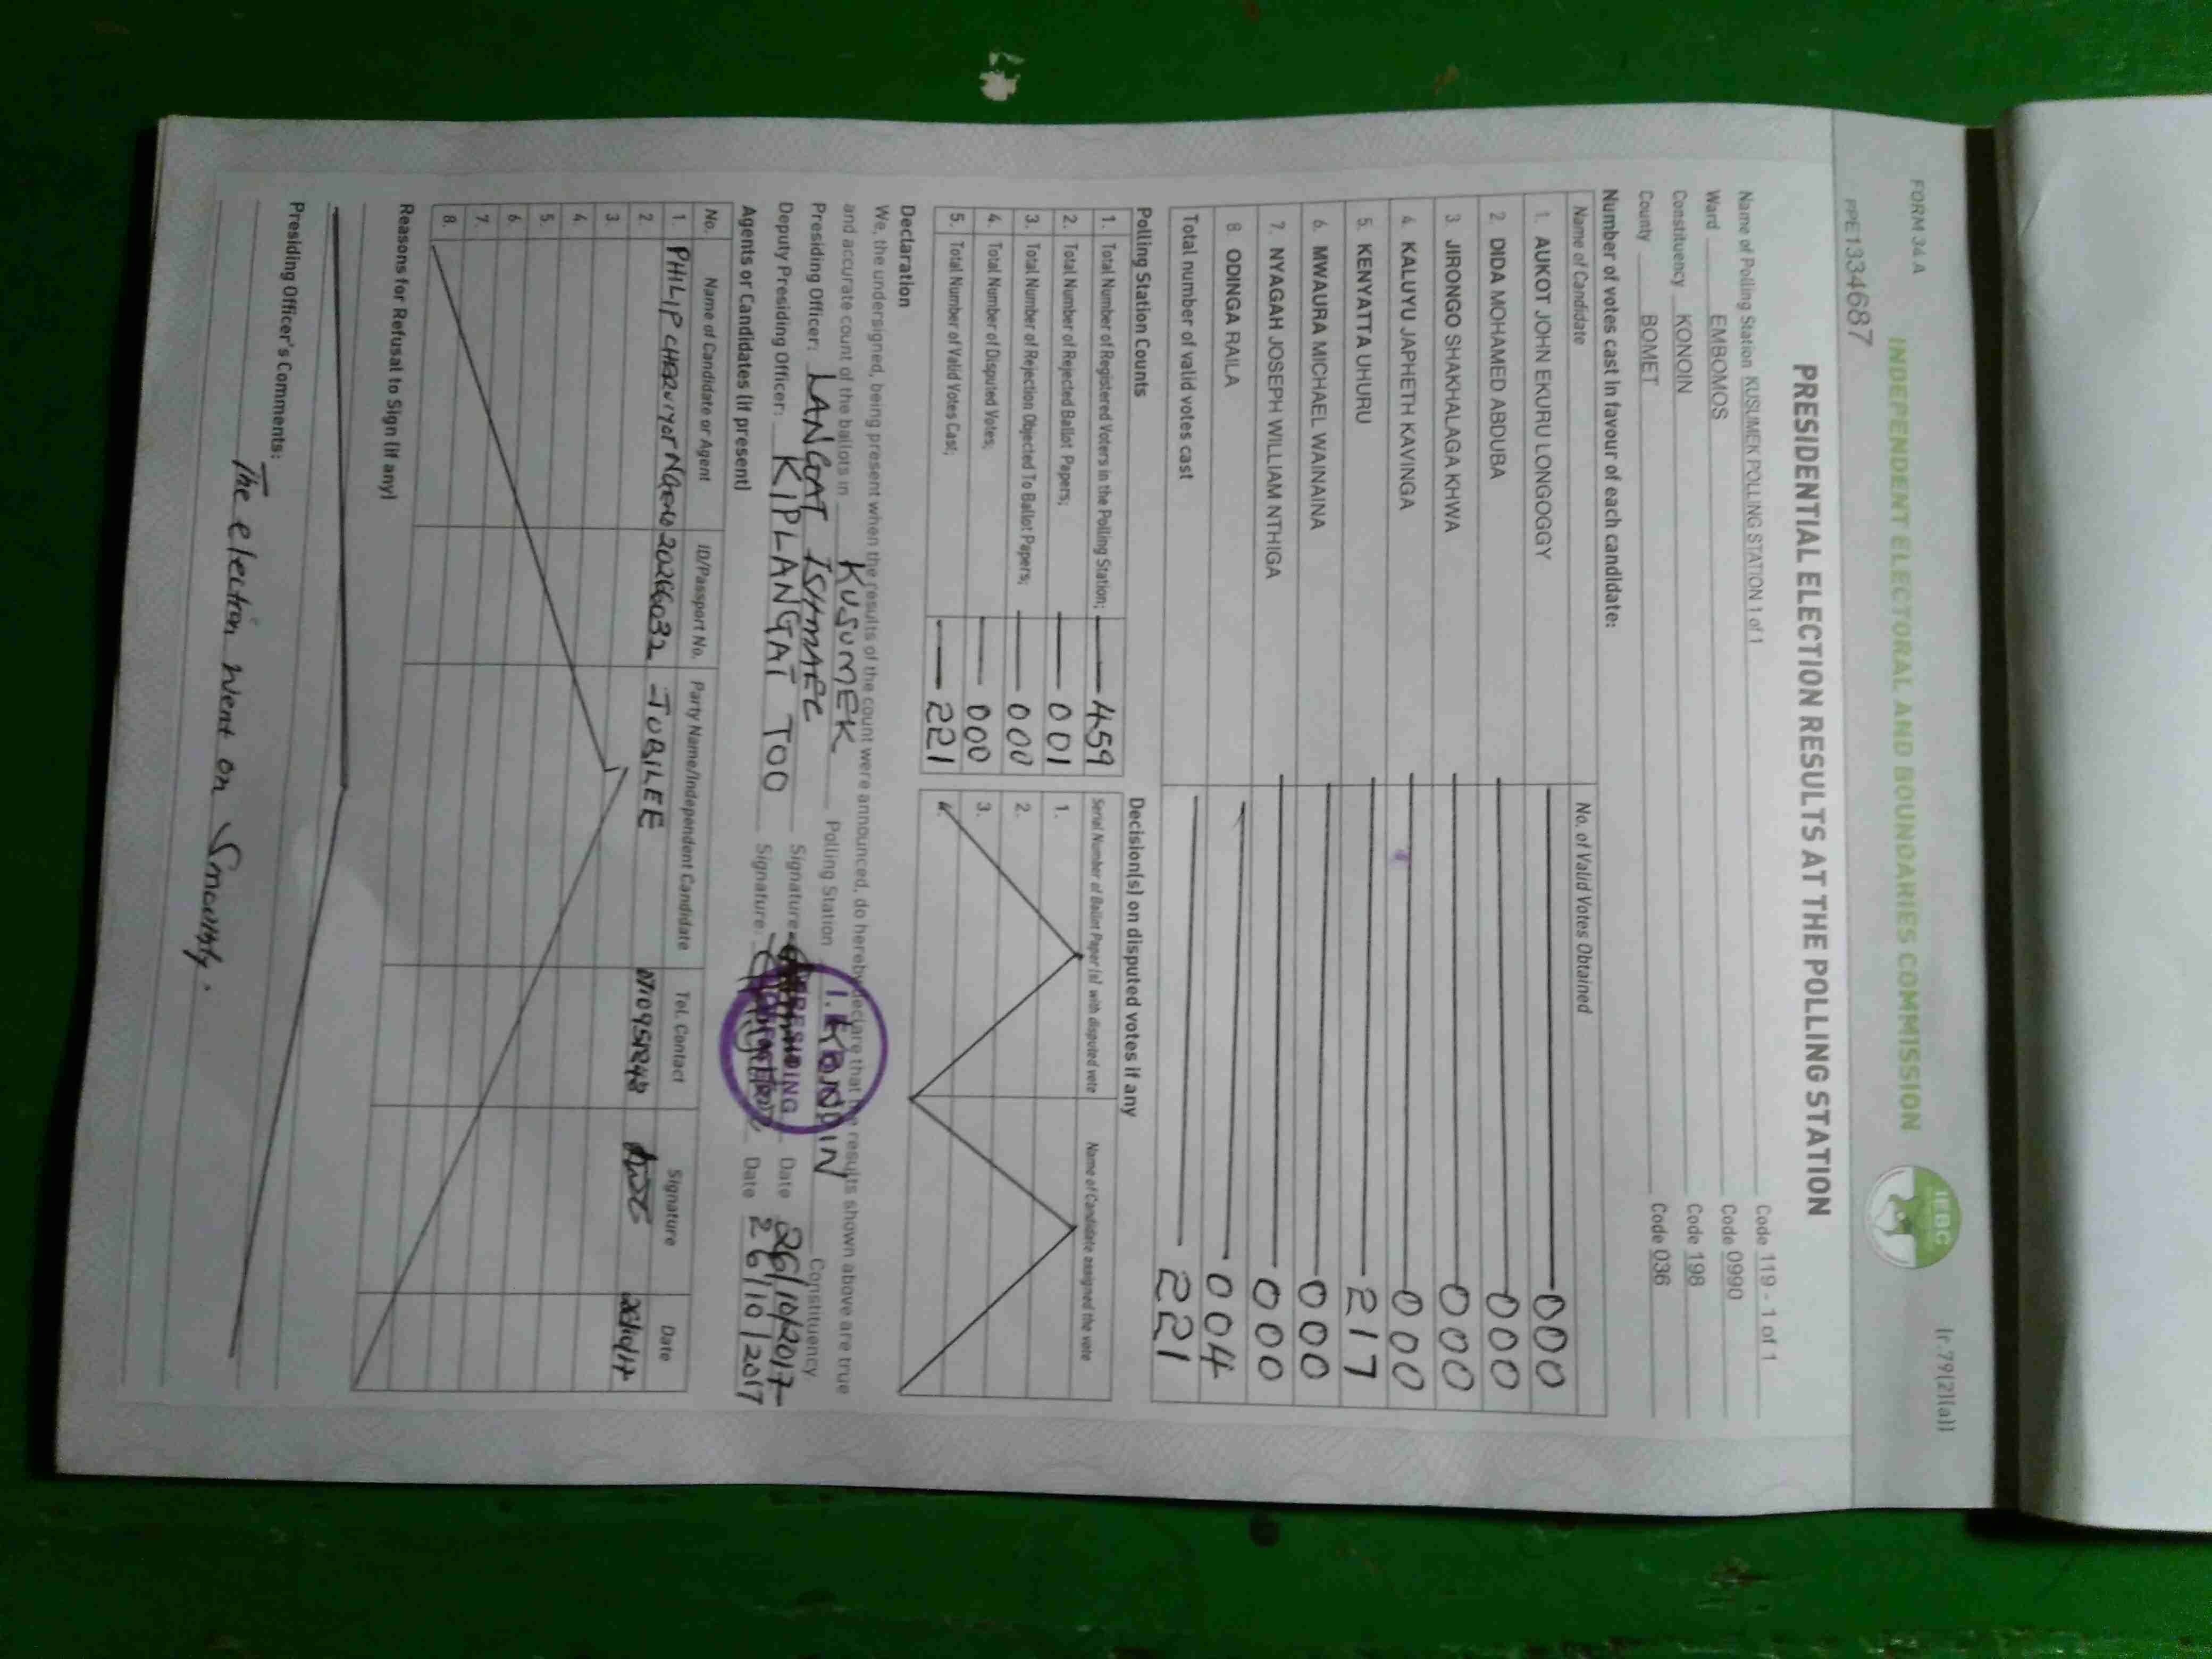 FORM 34 A
(r.79(2)(a))
INDEPENDENT ELECTORAL AND BOUNDARIES COMMISSION
IEBC
PPE1334687
PRESIDENTIAL ELECTION RESULTS AT THE POLLING STATION
Name of Polling Station KUSUMEK POLLING STATION 1 of 1 Code 119 - 1 of 1
Ward EMBOMOS Code 0990
Constituency KONOIN Code 198
County BOMET Code 036
Number of votes cast in favour of each candidate:
Name of Candidate No. of Valid Votes Obtained
1. AUKOT JOHN EKURU LONGOGGY 000
2. DIDA MOHAMED ABDUBA 000
3. JIRONGO SHAKHALAGA KHWA 000
4. KALUYU JAPHETH KAVINGA 000
5. KENYATTA UHURU 217
6. MWAURA MICHAEL WAINAINA 000
7. NYAGAH JOSEPH WILLIAM NTHIGA 000
8. ODINGA RAILA 004
Total number of valid votes cast 221
Polling Station Counts
1. Total Number of Registered Voters in the Polling Station; 459
2. Total Number of Rejected Ballot Papers; 001
3. Total Number of Rejection Objected To Ballot Papers; 000
4. Total Number of Disputed Votes; 000
5. Total Number of Valid Votes Cast; 221
Decision(s) on disputed votes if any
Serial Number of Ballot Paper (s) with disputed vote Name of Candidate assigned the vote
1.
2.
3.
4.
Declaration
We, the undersigned, being present when the results of the count were announced, do hereby declare that the results shown above are true
and accurate count of the ballots in KUSUMEK Polling Station KONOIN Constituency
Presiding Officer: LANGAT ISHMAEL Signature: Date 26/10/2017
Deputy Presiding Officer: KIPLANGAT TOO Signature: Date 26/10/2017
PRESIDING
Agents or Candidates (if present)
No. Name of Candidate or Agent ID/Passport No. Party Name/Independent Candidate Tel. Contact Signature Date
1. PHILIP CHERUIYOT 2026032 JUBILEE 26/10/17
2.
3.
4.
5.
6.
7.
8.
Reasons for Refusal to Sign (if any)
Presiding Officer's Comments:
The election went on smoothly.